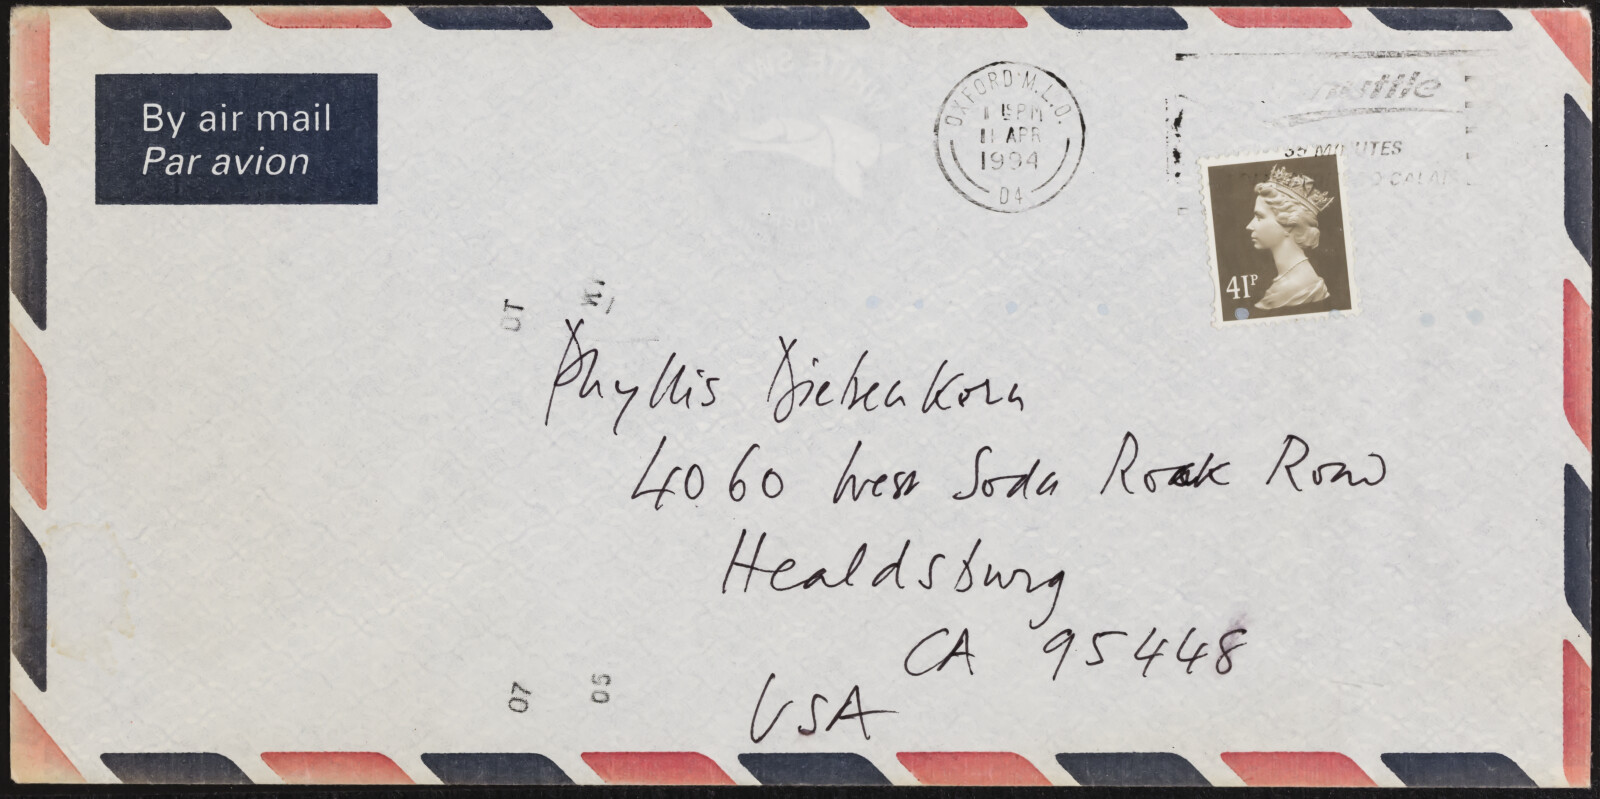 By air mail
Par avion
OXFORD M.L.O.
PM
11 APR
1994
D4
35 MINUTES
CALAI
41P
OT
Phyllis Diebenkorn
4060 West Soda Rock Road
Healdsburg
CA 95448
USA
07
05